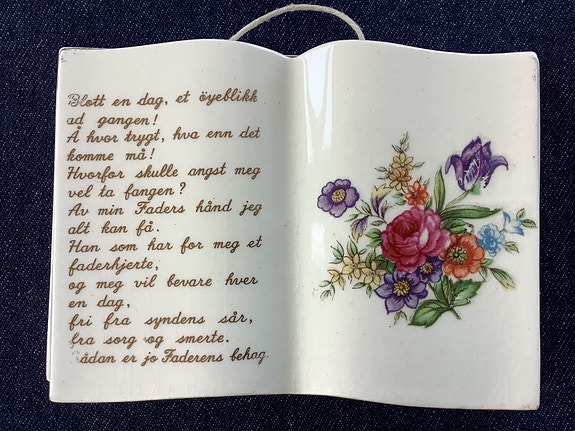 Blott en dag, et öyeblikk
ad gangen!
Å hvor trygt, hva enn det
komme må!
Hvorfor skulle angst meg
vel ta fangen?
Av min Faders hånd jeg
alt kan få.
Han som har for meg et
faderhjerte,
og meg vil bevare hver
en dag,
fri fra syndens sår,
fra sorg og smerte.
Sådan er jo Faderens behag.